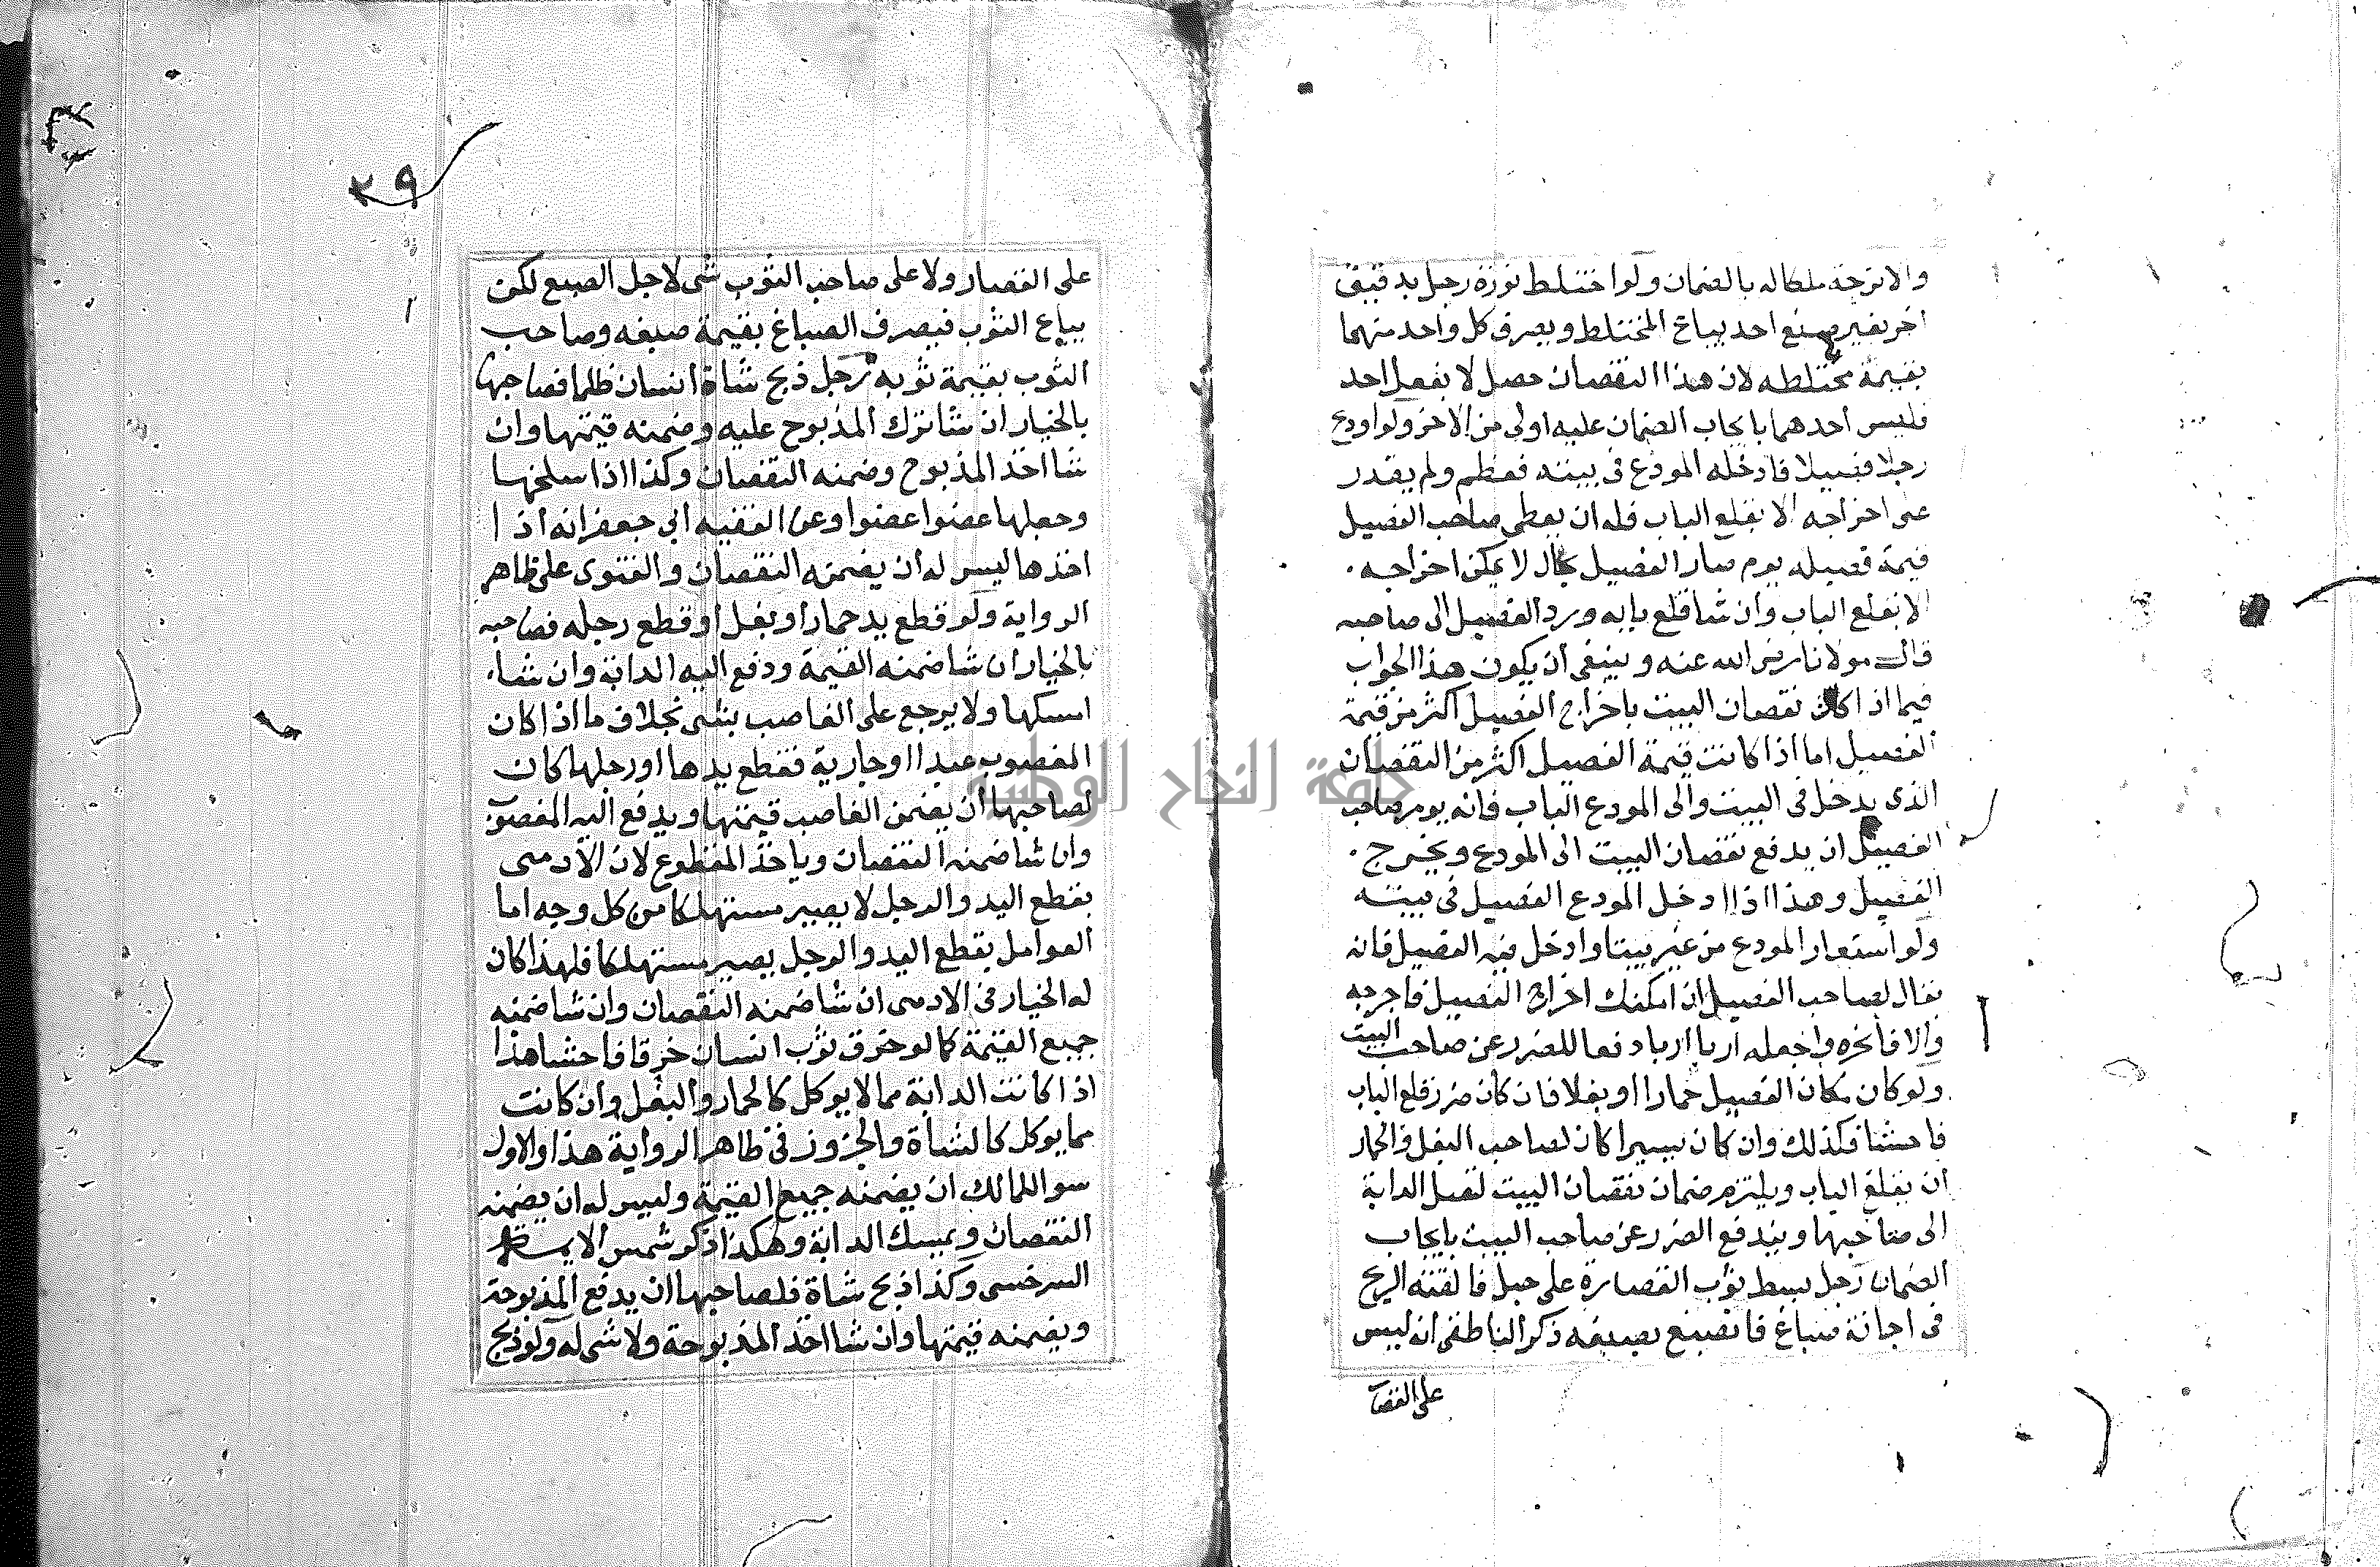 والاترجة ملكاله بالضمان ولو اختلط نورة رجل بدقيق
اخر بغير صنع احد يباع المختلط ويصرف كل واحد منهما
بقيمة مختلطه لان هذا النقصان حصل لا بفعل احد
فليس احدهما بايجاب الضمان عليه اولى من الاخر ولو اودع
رجلا فصيلا فادخله المودع في بيته فعظم ولم يقدر
على اخراجه الا بقلع الباب فله ان يعطى صاحب الفصيل
قيمة فصيله يوم صار الفصيل بحال لا يمكن اخراجه
الا بقلع الباب وان شا قلع بابه ورد الفصيل الى صاحبه
قال مولانا رضي الله عنه وينبغى ان يكون هذا الجواب
فيما اذا كان نقصان البيت باخراج الفصيل اكثر من قيمة
الفصيل اما اذا كانت قيمة الفصيل اكثر من النقصان
الذى يدخل في البيت والى المودع الباب فانه يومر صاحب
الفصيل ان يدفع نقصان البيت الى المودع ويخرج
الفصيل وهذا اذا ادخل المودع الفصيل في بيته
ولو استعار المودع من غير بيتا وادخل فيه الفصيل فانه
يقال لصاحب الفصيل ان امكنك اخراج الفصيل فاخرجه
والا فانحره واجعله اربا اربا دفعا للضرر عن صاحب البيت
ولو كان مكان الفصيل حمارا او بغلا فان كان ضرر قلع الباب
فاحشا فكذلك وان كان يسيرا كان لصاحب البغل والحمار
ان يقلع الباب ويلتزم ضمان نقصان البيت لتصل الدابة
الى صاحبها ويندفع الضرر عن صاحب البيت بايجاب
الضمان رجل بسط ثوب القصارة على حبل فالقته الريح
في اجانة صباغ فانصبغ بصبغه ذكر الناطفى انه ليس
على القصا
٢٩
على القصار ولا على صاحب الثوب شى لاجل الصبع لكن
يباع الثوب فيصرف الصباغ بقيمة صبغه وصاحب
الثوب بقيمة ثوبه رجل ذبح شاة انسان ظلما فصاحبها
بالخيار ان شا ترك المذبوح عليه وضمنه قيمتها وان
شا اخذ المذبوح وضمنه النقصان وكذا اذا سلخها
وجعلها عضوا عضوا وعن الفقيه ابي جعفر انه اذا
اخذها ليس له ان يضمنه النقصان والفتوى على ظاهر
الرواية ولو قطع يد حمار او بغل او قطع رجله فصاحبه
بالخيار ان شا ضمنه القيمة ودفع اليه الدابة وان شا
امسكها ولا يرجع على الغاصب بشى بخلاف ما اذا كان
المغصوب عبدا او جارية فقطع يدها او رجلها كان
لصاحبها ان يضمن الغاصب قيمتها ويدفع اليه المغصوب
وان شا ضمنه النقصان وياخذ المقطوع لان الآدمى
بقطع اليد والرجل لا يصير مستهلكا من كل وجه اما
العوامل بقطع اليد والرجل يصير مستهلكا فلهذا كان
له الخيار في الادمى ان شا ضمنه النقصان وان شا ضمنه
جميع القيمة كما لو خرق ثوب انسان خرقا فاحشا هذا
اذا كانت الدابة مما لا يوكل كالحمار والبغل وان كانت
مما يوكل كالشاة والجزور في ظاهر الرواية هذا والاول
سوا للمالك ان يضمنه جميع القيمة وليس له ان يضمنه
النقصان ويمسك الدابة وهكذا ذكر شمس الايمة
السرخسى وكذا ذبح شاة فلصاحبها ان يدفع المذبوحة
ويضمنه قيمتها وان شا اخذ المذبوحة ولا شى له ولو ذبح
جامعة النجاح الوطنية